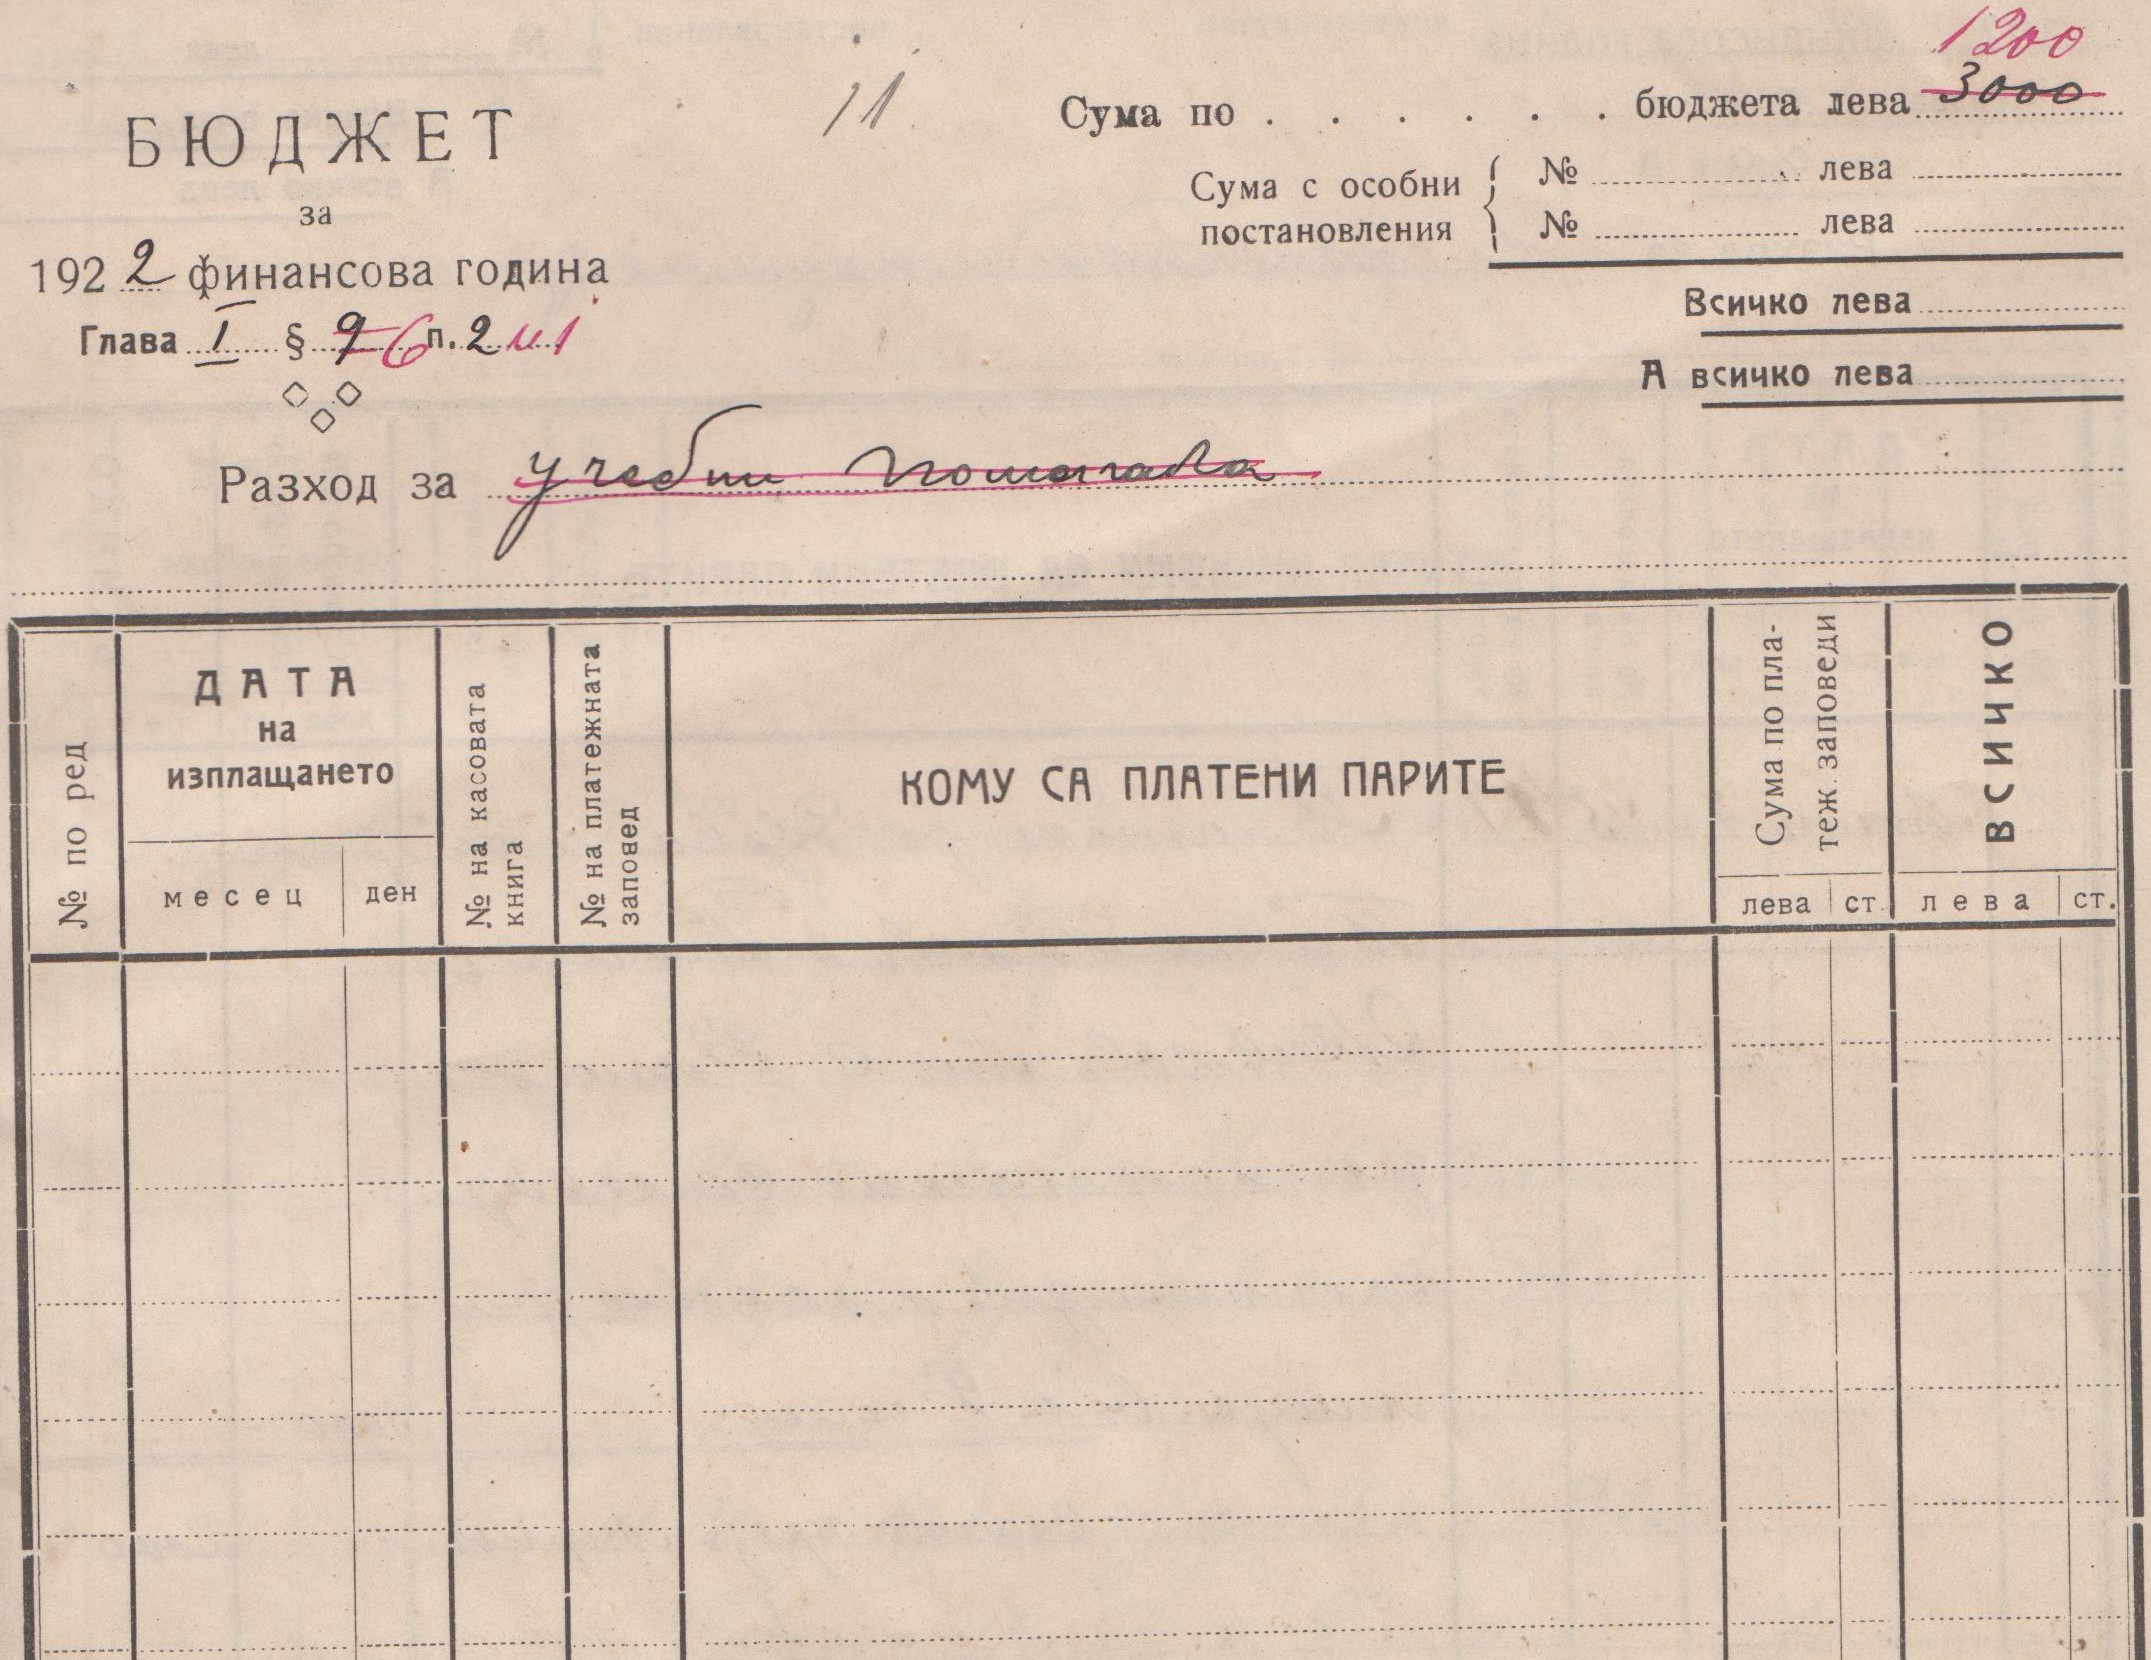 11
БЮДЖЕТ
за
1922 финансова година
Глава I § 9 6 п. 2 и 1
1200
Сума по . . . . . . бюджета лева 3000
Сума с особни постановления
№ лева
№ лева
Всичко лева
А всичко лева
Разход за учебни помагала
№ по ред
ДАТА
на
изплащането
месец ден
№ на касовата
книга
№ на платежната
заповед
КОМУ СА ПЛАТЕНИ ПАРИТЕ
Сума по пла-
теж. заповеди
лева ст.
ВСИЧКО
лева ст.